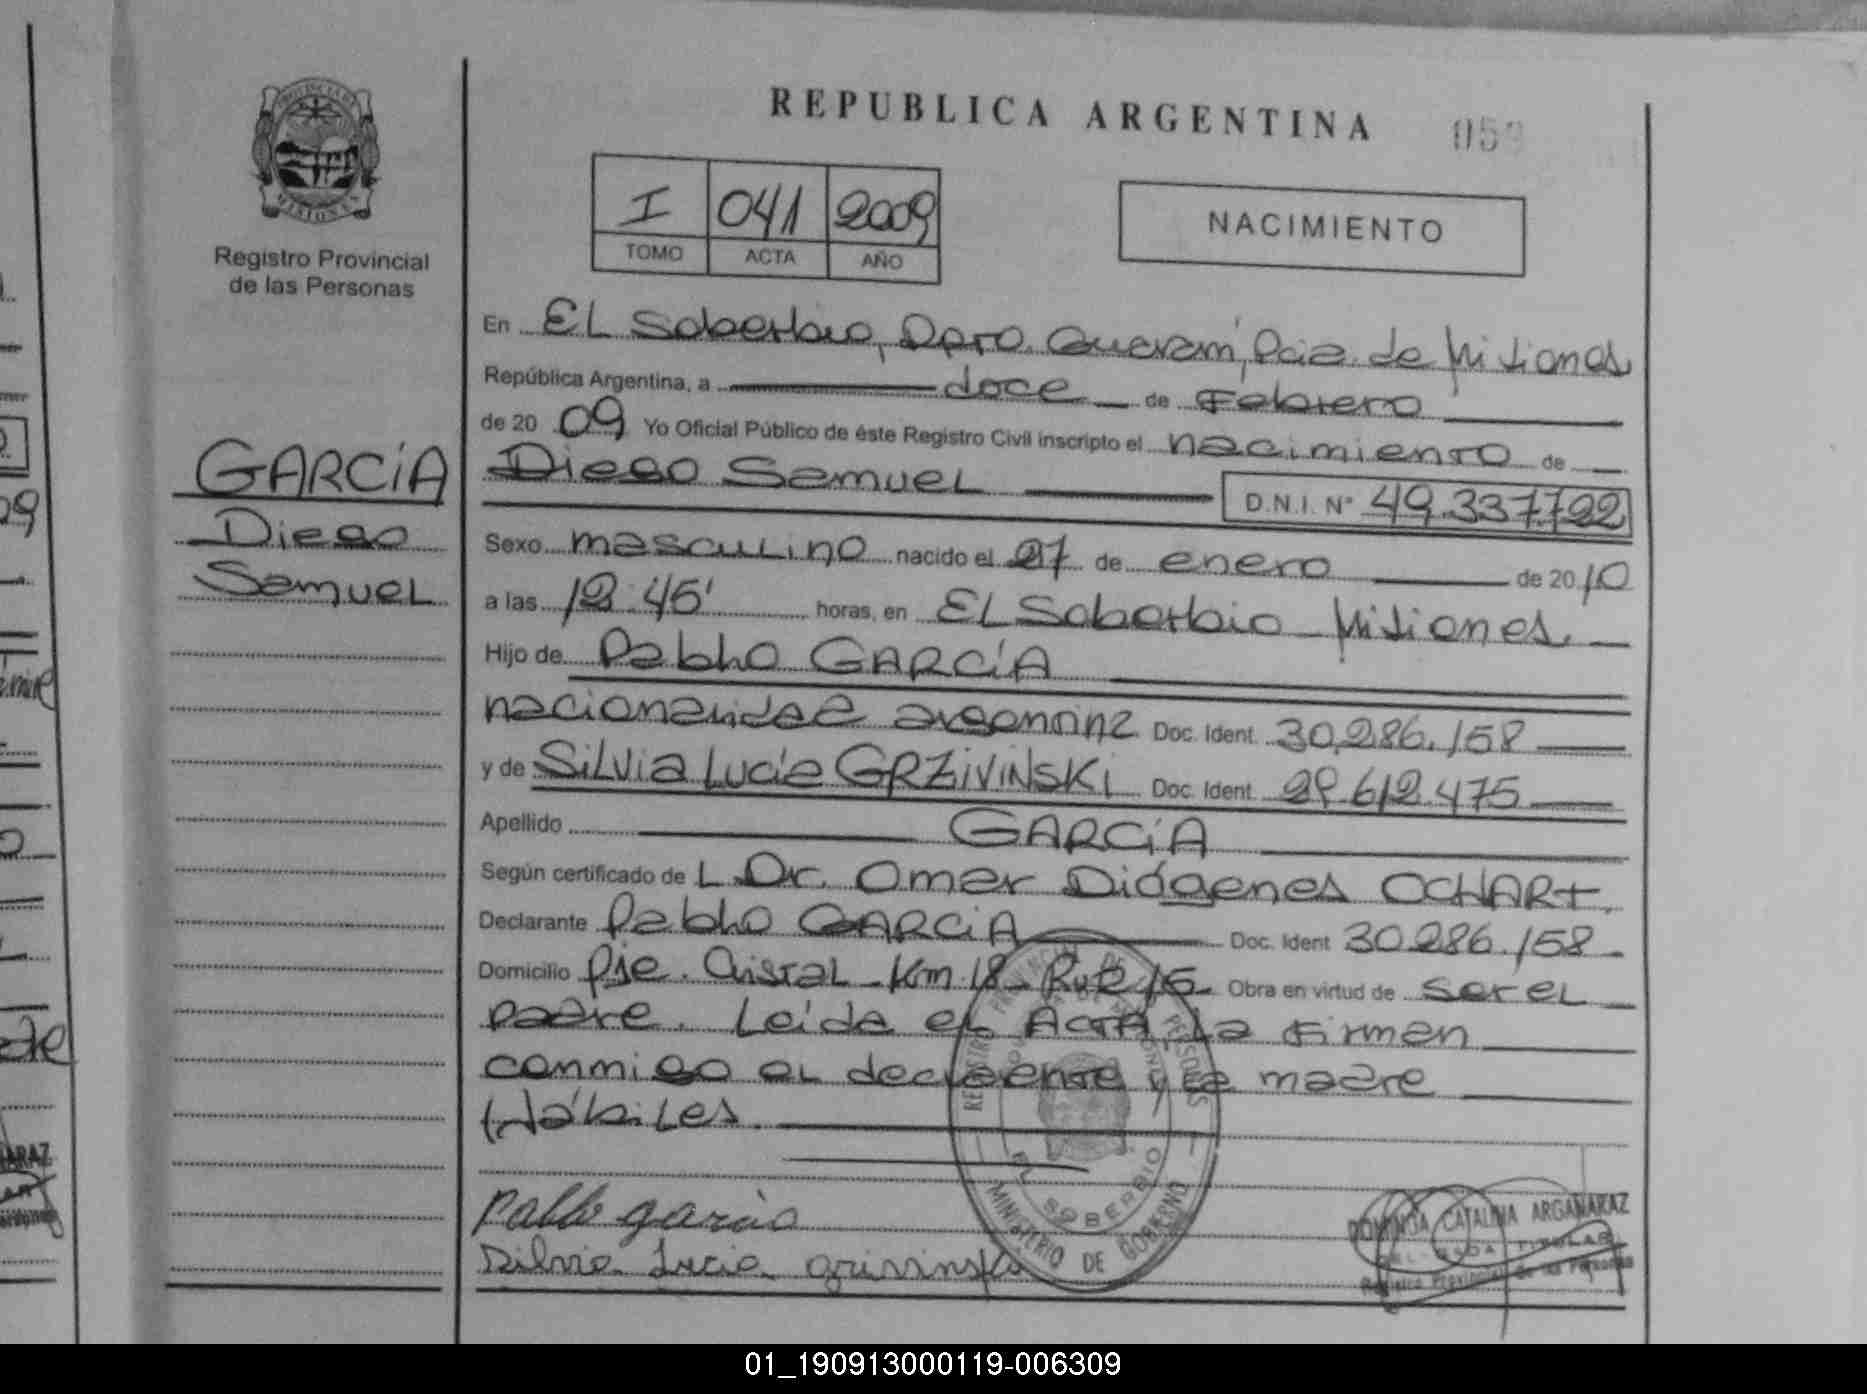 REPUBLICA ARGENTINA 059
PROVINCIA DE
MISIONES
Registro Provincial
de las Personas
I 041 2009
TOMO ACTA AÑO
NACIMIENTO
En EL Soberbio, Dpto. Guaraní, Pcia. de Misiones
República Argentina, a doce de Febrero
de 20 09 Yo Oficial Público de éste Registro Civil inscripto el nacimiento de
GARCíA
Diego Samuel D.N.I. N° 49.337.722
Diego
Samuel
Sexo masculino nacido el 27 de enero de 20 10
a las 12:45' horas, en EL Soberbio Misiones.
Hijo de Pablo GARCíA
nacionalidad argentina Doc. Ident. 30.286.158
y de SiLVia Lucía GRZiViNSKi Doc. Ident. 29.612.475
Apellido GARCíA
Según certificado de L Dr. Omar Diógenes OCHART.
Declarante Pablo GARCíA Doc. Ident 30.286.158
Domicilio Pje. Cristal Km.18 Ruta 15 Obra en virtud de ser el
padre. Leida el ACTA, La Firman
conmigo el declarante y la madre
Hábiles.
REGISTRO PROVINCIAL DE LAS PERSONAS
EL SOBERBIO
MINISTERIO DE GOBIERNO
Pablo garcia
Silvia Lucia grivinski
DOMINGA CATALINA ARGAÑARAZ
TITULAR
Registro Provincial de las Personas
01_190913000119-006309